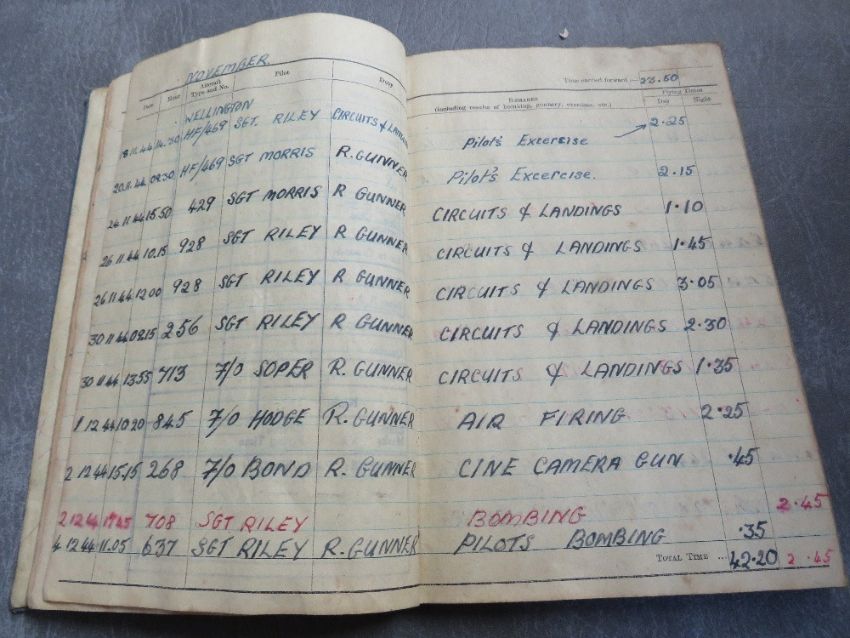 NOVEMBER.
Date Hour Aircraft Type and No. Pilot Duty
WELLINGTON
18.11.44 14.30 HF/469 SGT. RILEY CIRCUITS & LANDING
20.11.44 09.30 HF/469 SGT MORRIS R. GUNNER
24.11.44 15.50 429 SGT MORRIS R GUNNER
26.11.44 10.15 928 SGT RILEY R GUNNER
26.11.44 12.00 928 SGT RILEY R GUNNER
30.11.44 09.15 256 SGT RILEY R GUNNER
30 11 44 13.55 713 F/O SOPER R. GUNNER
1 12 44 10 20 845 F/O HODGE R. GUNNER
2 12 44 15.15 268 F/O BOND R. GUNNER
2 12 44 17.45 708 SGT RILEY
4 12 44 11.05 637 SGT RILEY R. GUNNER
Time carried forward :— 23.50
Remarks Flying Times
(including results of bombing, gunnery, exercises, etc.) Day Night
Pilot's Excercise 2.25
Pilot's Excercise. 2.15
CIRCUITS & LANDINGS 1.10
CIRCUITS & LANDINGS 1.45
CIRCUITS & LANDINGS 3.05
CIRCUITS & LANDINGS 2.30
CIRCUITS & LANDINGS 1.35
AIR FIRING 2.25
CINE CAMERA GUN .45
BOMBING 2.45
PILOTS BOMBING .35
Total Time ... 42.20 2.45